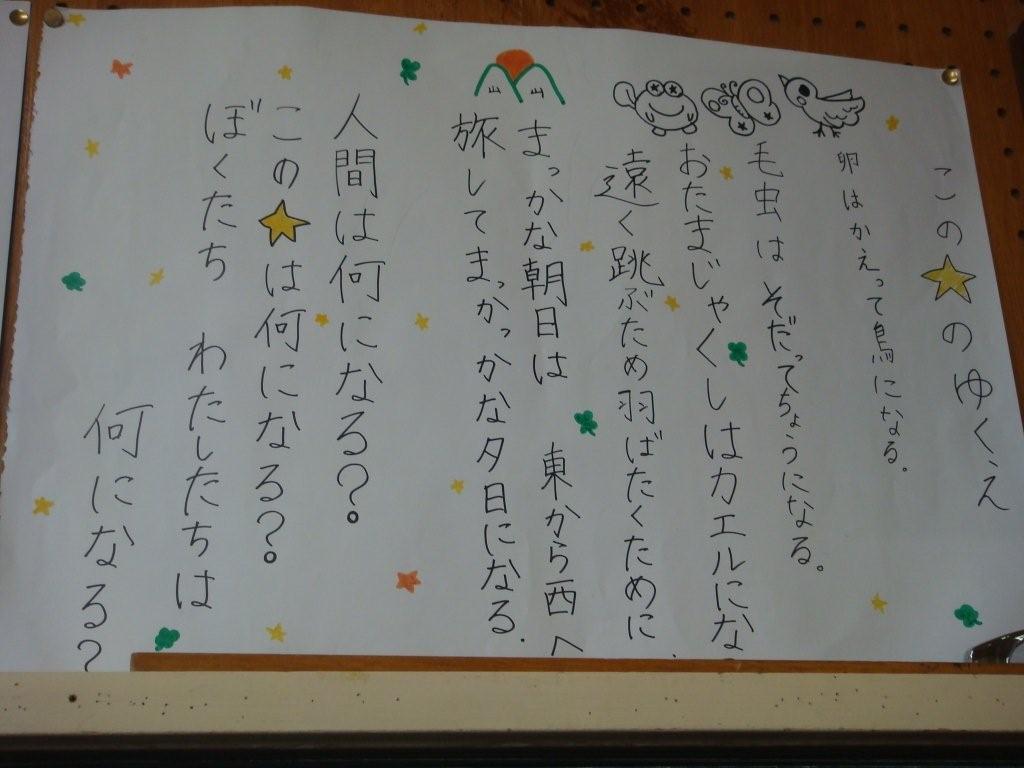 この★のゆくえ
卵はかえって鳥になる。
毛虫は そだってちょうになる。
おたまじゃくしはカエルにな
遠く跳ぶため羽ばたくために
まっかな朝日は 東から西へ
旅してまっかっかな夕日になる.
人間は何になる?。
この★は何になる?。
ぼくたち わたしたちは
何になる?
山 山